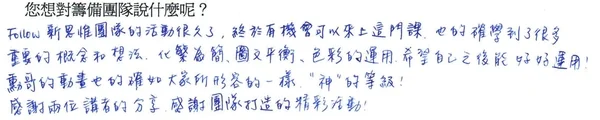 您想對籌備團隊說什麼呢？
Follow 新思惟團隊的活動很久了，終於有機會可以來上這門課，也的確學到了很多
重要的概念和想法。化繁為簡、圖文平衡、色彩的運用，希望自己之後能好好運用！
勳哥的動畫也的確如大家所形容的一樣，"神"的等級！
感謝兩位講者的分享，感謝團隊打造的精彩活動！